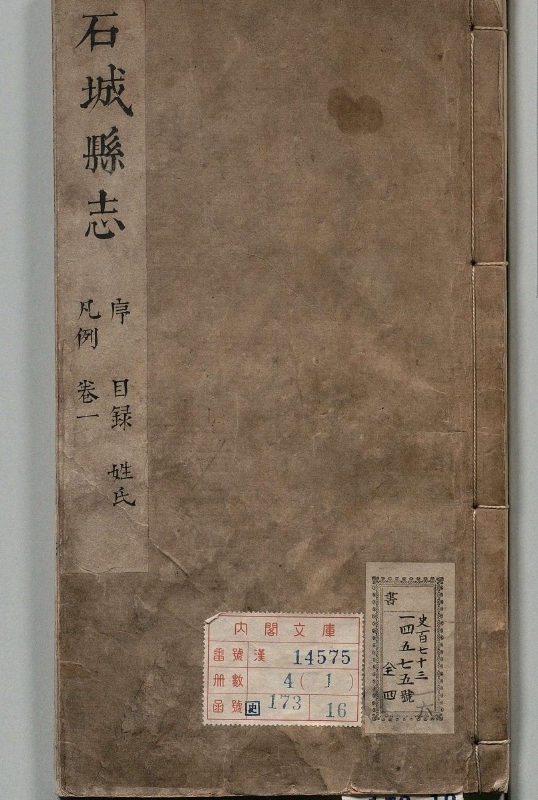 石城縣志
序 目録 姓氏
凡例 卷一
内閣文庫
番號 漢 14575
冊數 4(1)
函號 史 173 16
書
史百七十三
一四五七五號
全四